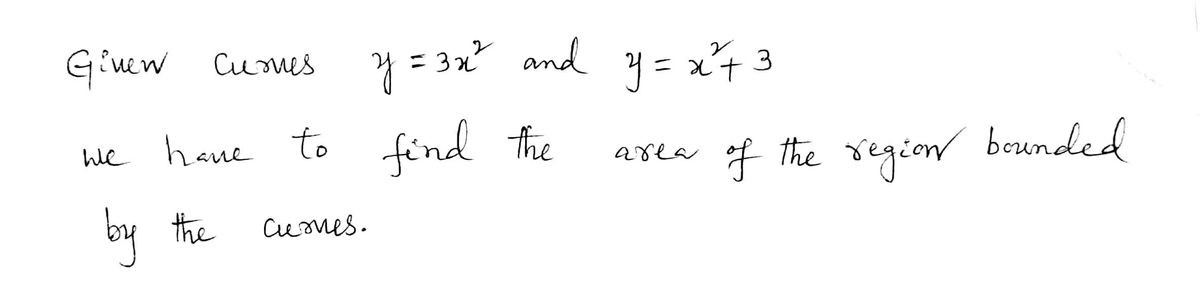 Given curves y = 3x² and y = x² + 3
we have to find the area of the region bounded
by the curves.